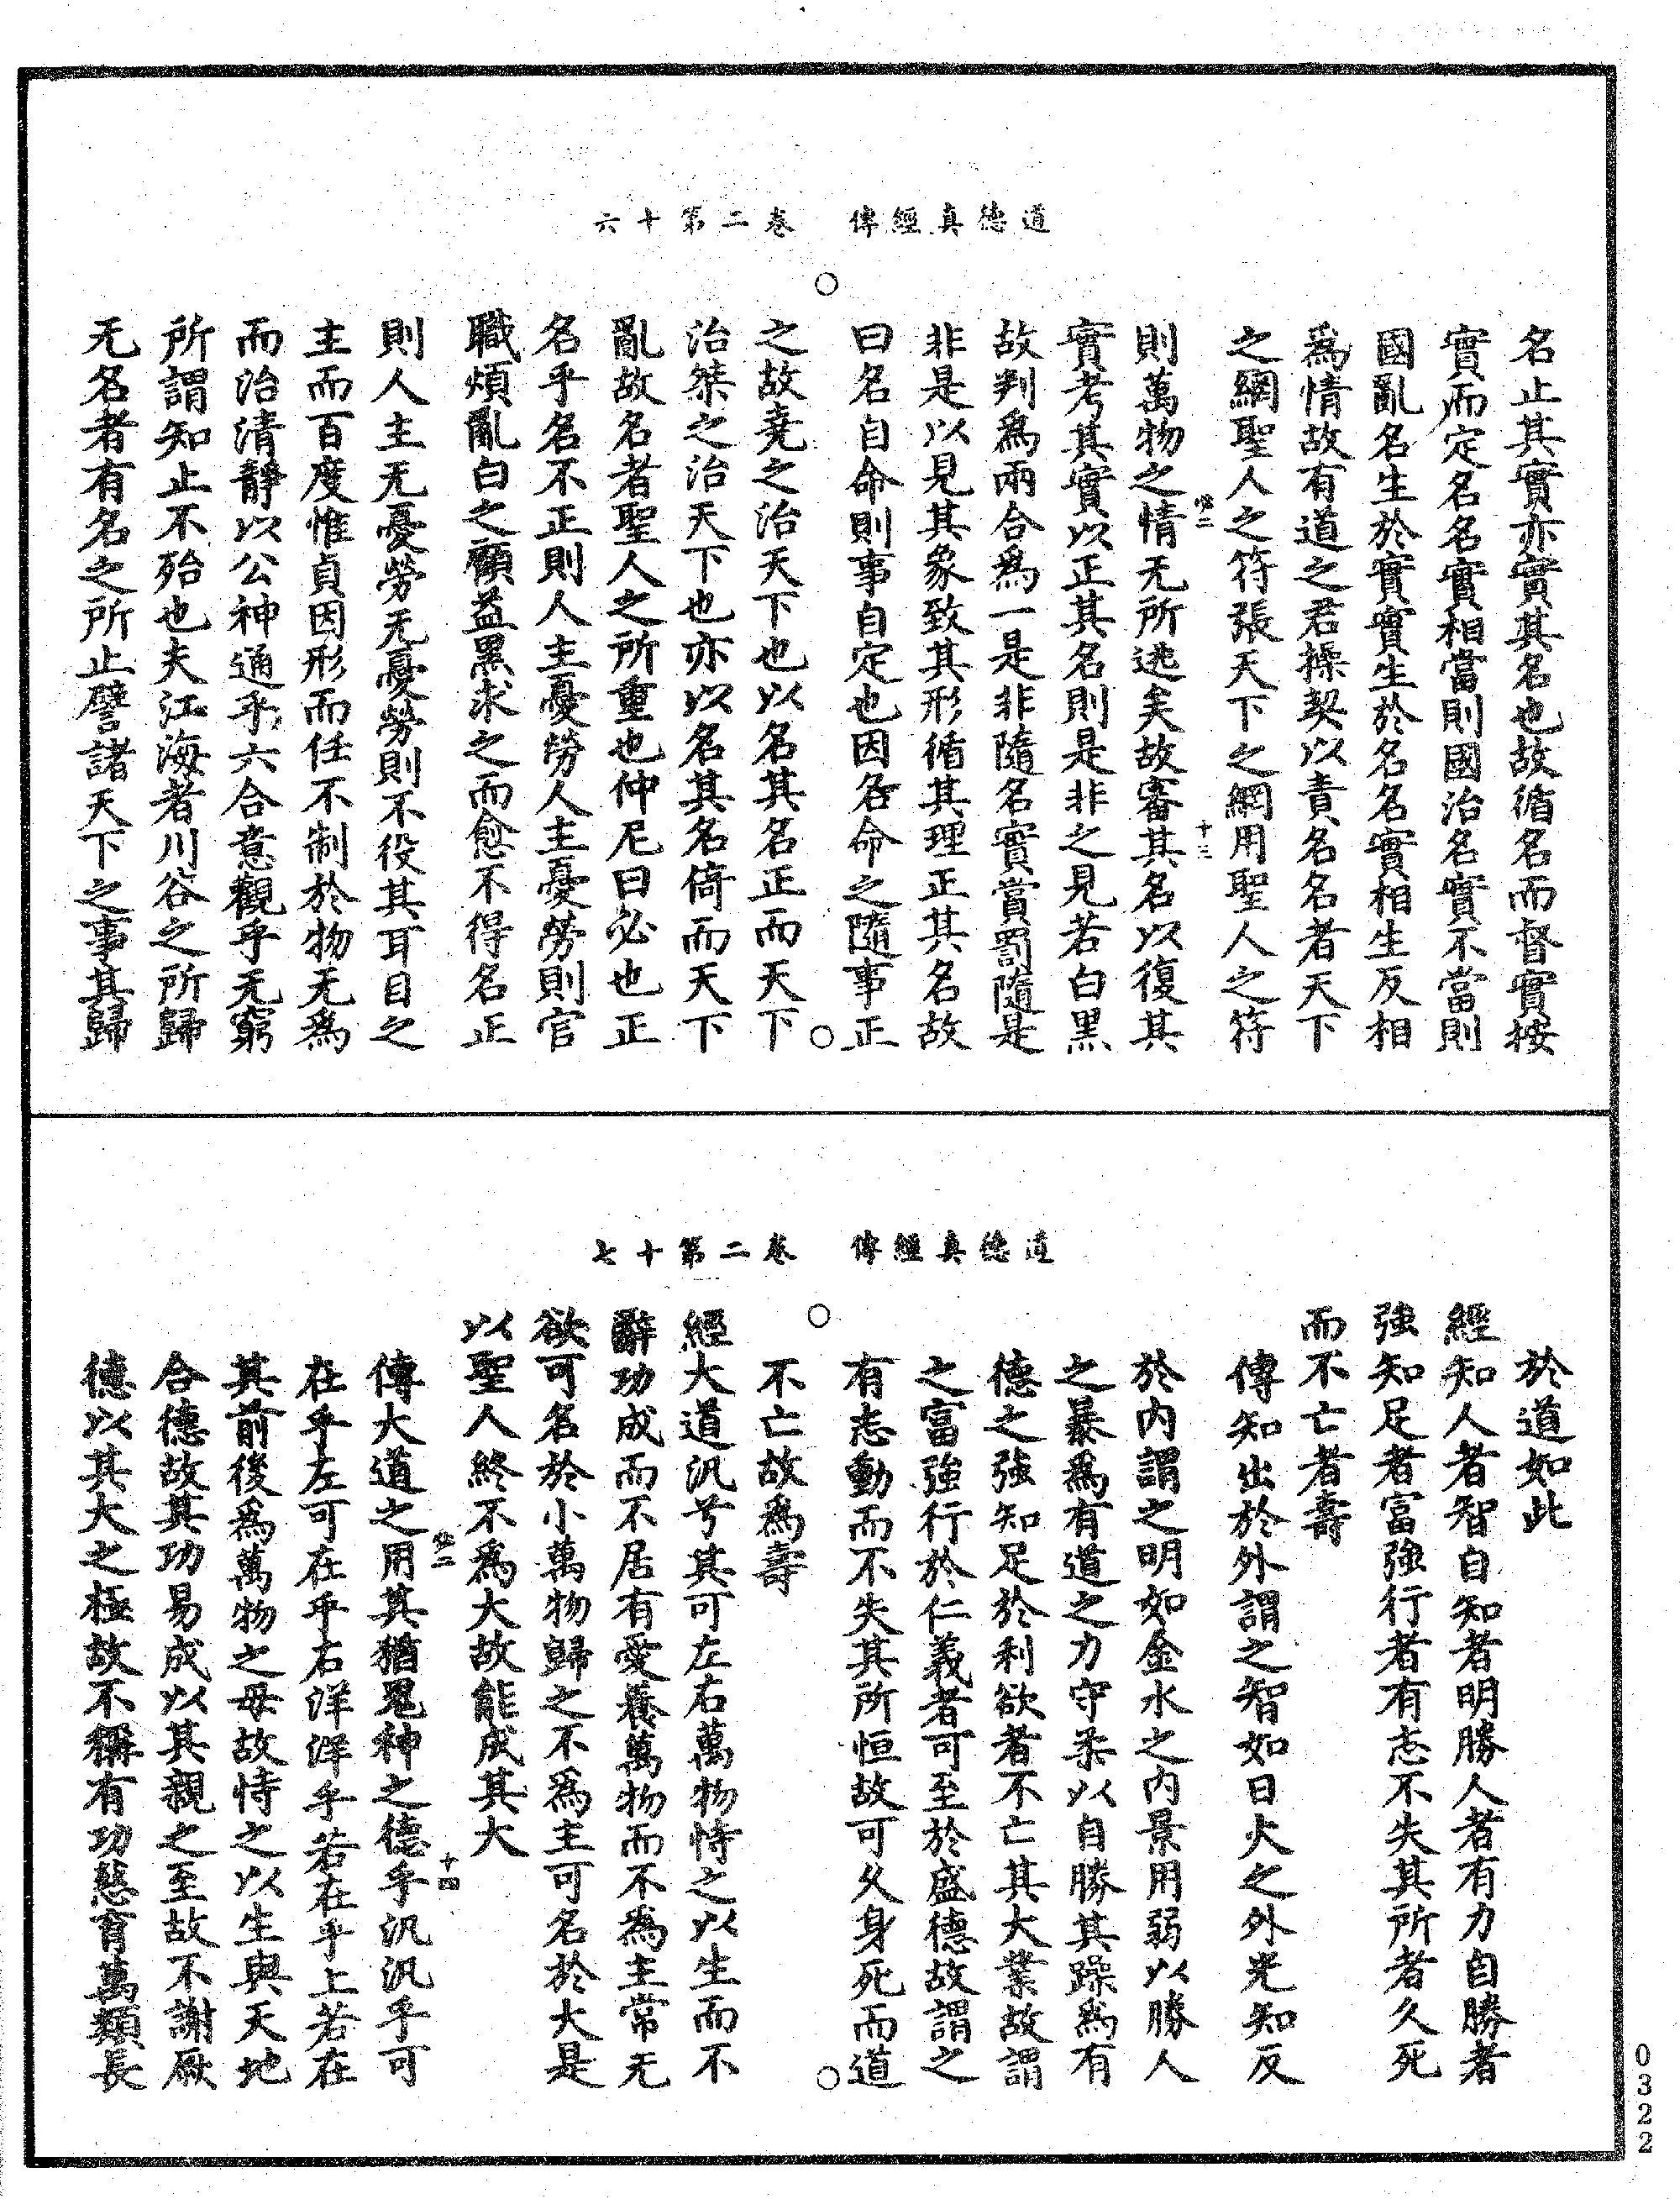 道德真經傳　卷二第十六
名止其實亦實其名也故循名而督實按
實而定名名實相當則國治名實不當則
國亂名生於實實生於名名實相生反相
爲情故有道之君操契以責名名者天下
之網聖人之符張天下之網用聖人之符
二　十三
則萬物之情无所逃矣故審其名以復其
實考其實以正其名則是非之見若白黑
故判爲兩合爲一是非隨名實賞罰隨是
非是以見其象致其形循其理正其名故
曰名自命則事自定也因名命之隨事正
之故堯之治天下也以名其名正而天下
治桀之治天下也亦以名其名倚而天下
亂故名者聖人之所重也仲尼曰必也正
名乎名不正則人主憂勞人主憂勞則官
職煩亂白之顧益黑求之而愈不得名正
則人主无憂勞无憂勞則不役其耳目之
主而百度惟貞因形而任不制於物无爲
而治清靜以公神通乎六合意觀乎无窮
所謂知止不殆也夫江海者川谷之所歸
无名者有名之所止譬諸天下之事其歸
道德真經傳　卷二第十七
於道如此
經知人者智自知者明勝人者有力自勝者
強知足者富強行者有志不失其所者久死
而不亡者壽
傳知出於外謂之智如日火之外光知反
於内謂之明如金水之内景用弱以勝人
之暴爲有道之力守柔以自勝其躁爲有
德之強知足於利欲者不亡其大業故謂
之富強行於仁義者可至於盛德故謂之
有志動而不失其所恒故可久身死而道
不亡故爲壽
經大道汎兮其可左右萬物恃之以生而不
辭功成而不居有愛養萬物而不爲主常无
欲可名於小萬物歸之不爲主可名於大是
以聖人終不爲大故能成其大
二　十四
傳大道之用其猶鬼神之德乎汎汎乎可
在乎左可在乎右洋洋乎若在乎上若在
其前後爲萬物之母故恃之以生與天地
合德故其功易成以其親之至故不謝厥
德以其大之極故不稱有功慈育萬類長
0322